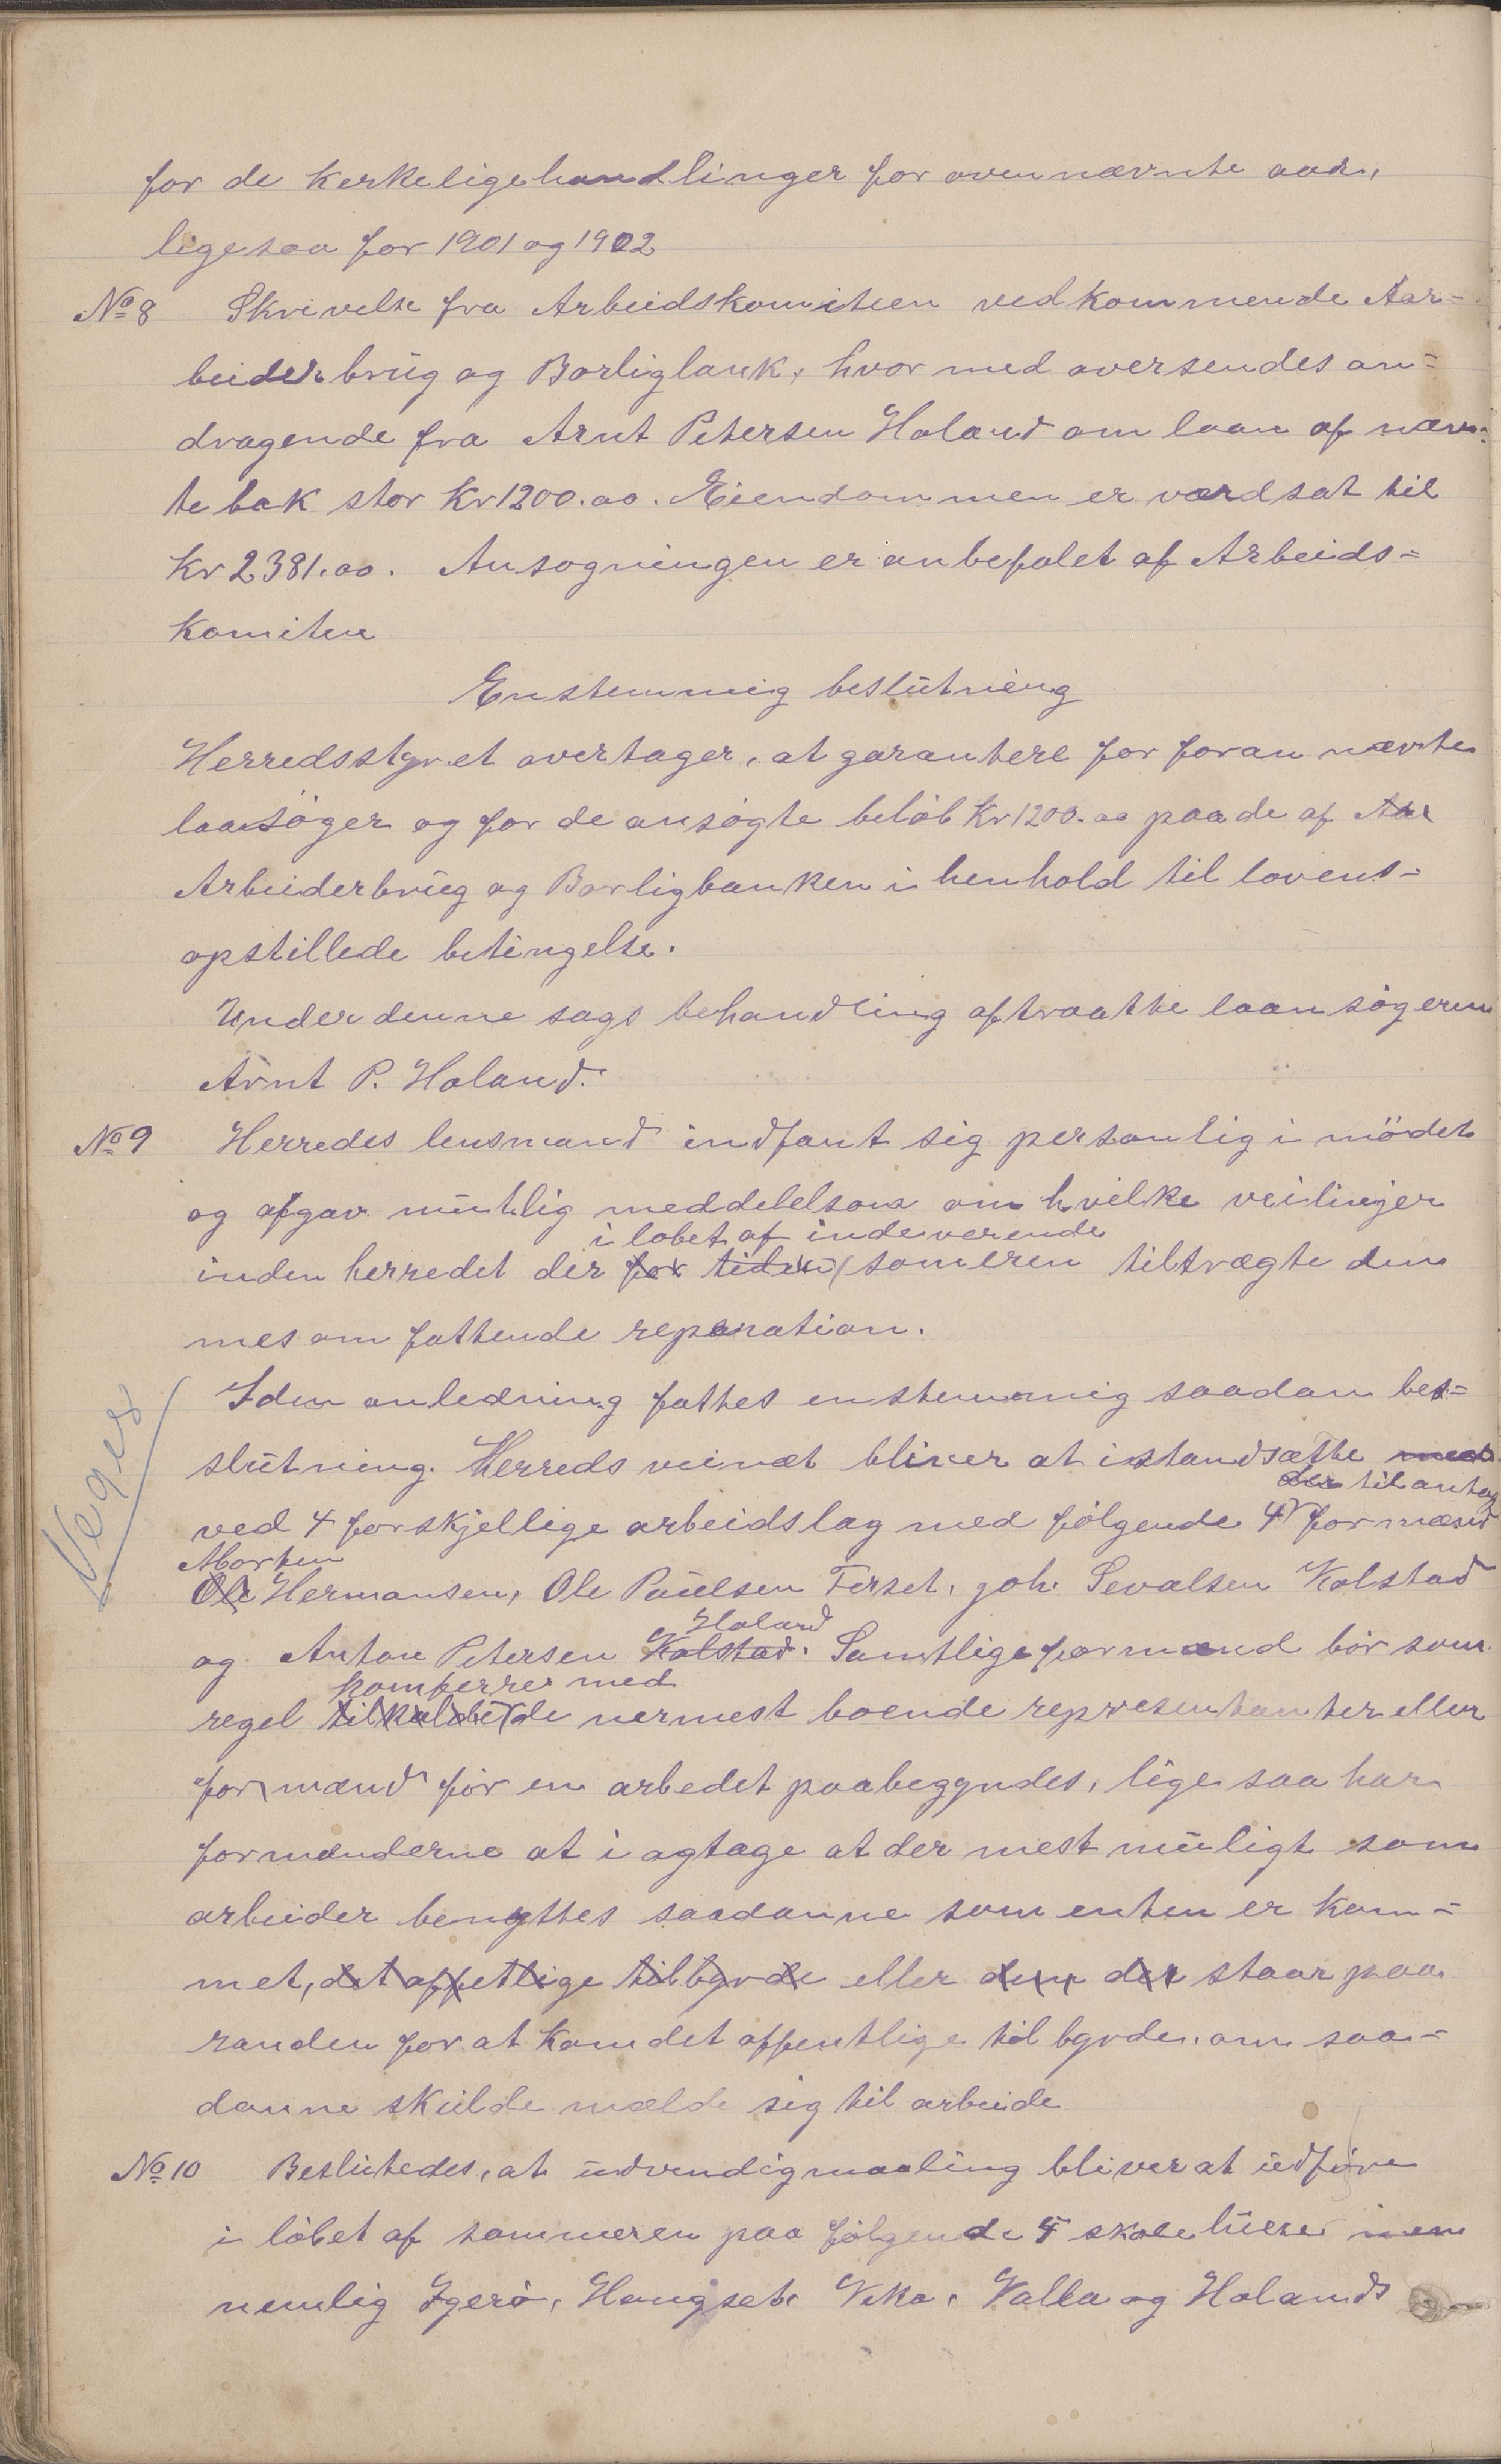 for de kerkelige handlinger for ovennævnte aar,
ligesaa for 1901 og 1902
No 8 Skrivelse fra Arbeidskomiteen vedkommende Aar-
beiderbrug og Borligbank, hvormed oversendes an-
dragende fra Arnt Petersen Holand om laan af nævn-
te bak stor Kr 1200.00. Eiendommen er værdsat til
Kr 2381.00. Ansogningen er anbefalet af Arbeids-
komiteen
Enstemmig beslutning
Herredsstyret overtager, at garantere for foran nævnte
laansøger og for de ansøgte beløb Kr 1200.00 paa de af Aar
Arbeiderbrug og Borligbanken i henhold til lovens-
opstillede betingelse.
Under denne sags behandling aftraatte laansøgeren
Arnt P. Holand.
No 9 Herredes lensmand indfant sig personlig i mødet
og afgav muntlig meddelelson om hvilke veilinjer
i løbet af indeverende
inden herredet der for tiden someren tiltrægte dem
mes om fattende reparation.
I den anledning fattes enstemmig saadan bes-
Veger
slutning. Herreds veinæt bliver at istandsætte med
der til antag
ved 4 forskjellige arbeidslag med følgende 4 formænd
Morten
Ole Hermansen, Ole Paulsen Ferset, Joh. Sevalsen Kolstad
Holand
og Anton Petersen Kolstad. Samtlige formænd bør som
komferrer med
regel tilkalde de nermest boende representanter eller
formænd før en arbedet paabegyndes, lige saa har
formænderne at i agtage at der mest muligt som
arbeider benyttes saadanne som enten er kom-
met, det offetlige til byrde eller dem der staar paa
randen for at kom det offentlige til byrde. om saa-
danne skulde mælde sig til arbeide
No 10 Beslutedes, at udvendig maaling bliver at udføre
i løbet af sommeren paa følgende 5 skolehuse
nemlig Ygerø, Hongset, Vika, Valla og Holands